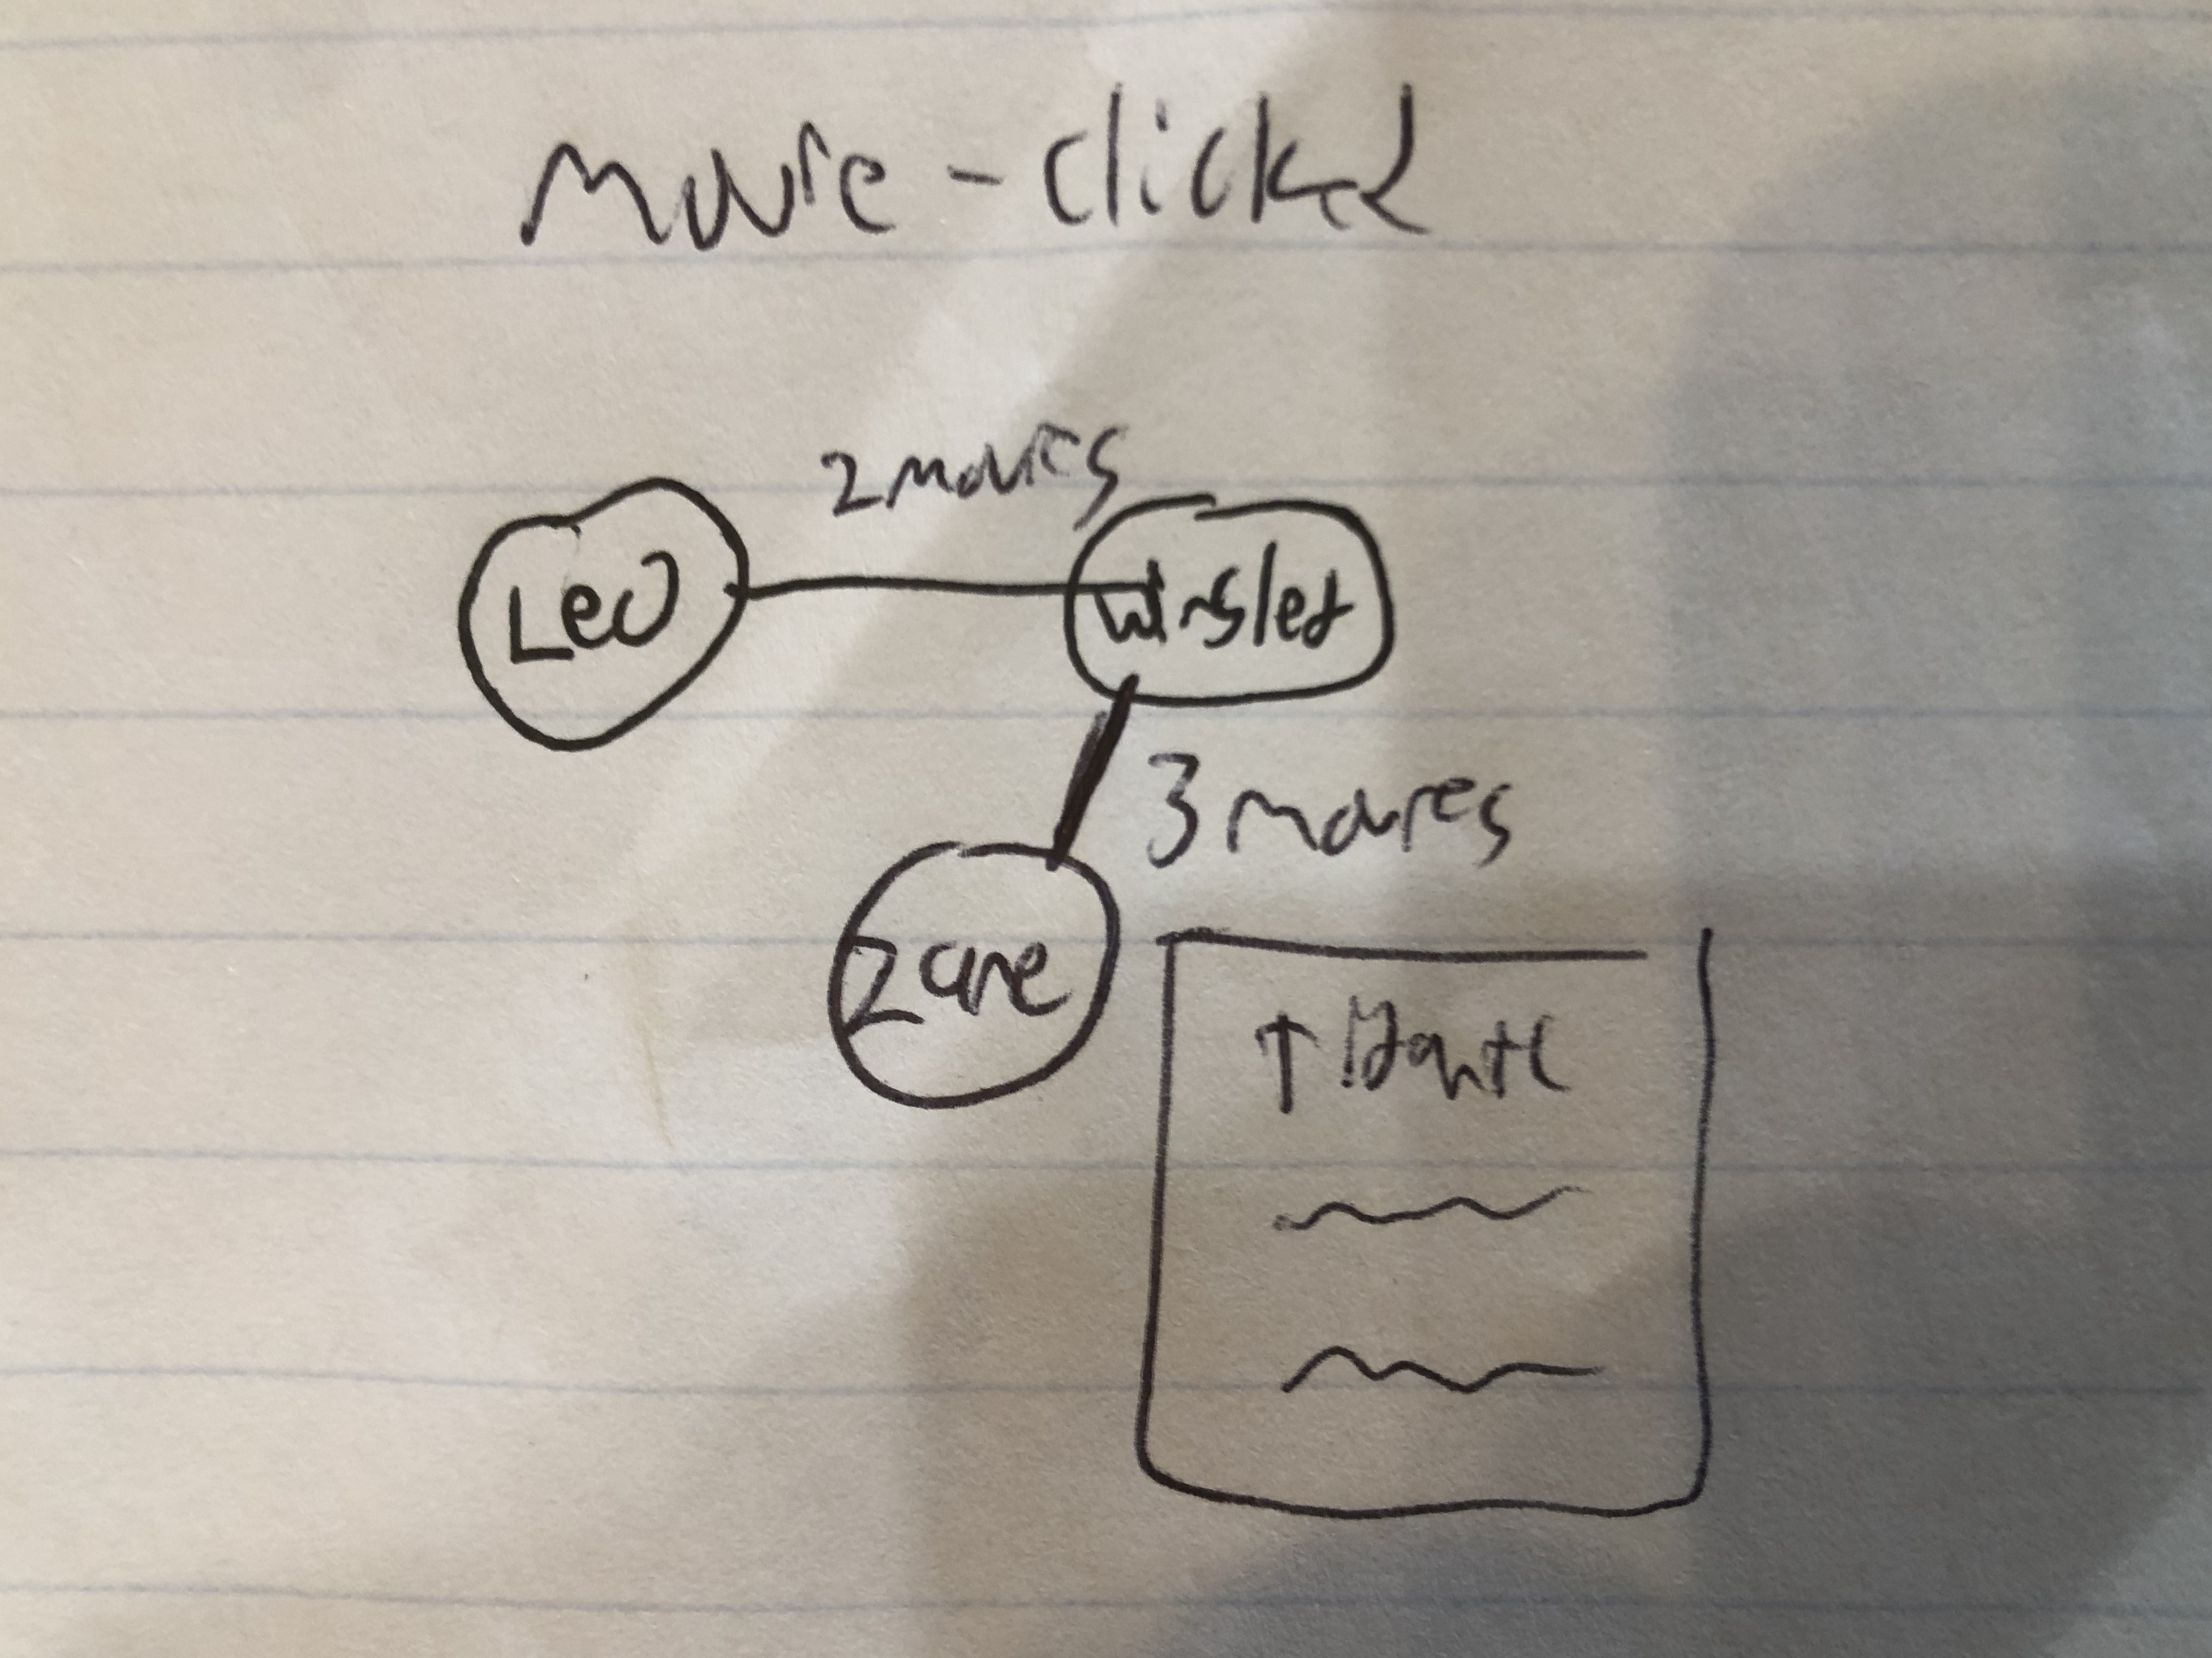 movie - clicked
2 movies
Leo
Winslet
3 movies
Zane
↑